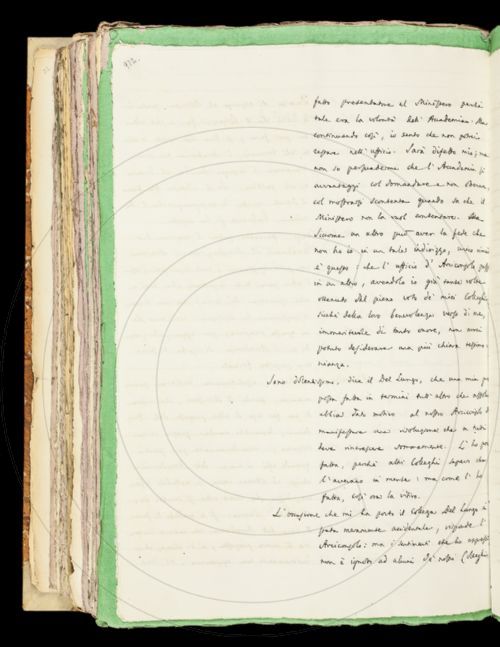 fatto presentatore al Ministero perchè
tale era la volontà dell' Accademia. Ma
continuando così, io sento che non potrei
restare nell' ufficio. Sarà difetto mio; ma
non so persuadermi che l' Accademia si
avvantaggi col domandare e non ottenere,
col mostrarsi scontenta quando sa che il
Ministero non la vuol contentare.
Siccome un altro può aver la fede che
non ho io in un tale indirizzo,
è questo: che l' ufficio d' Arciconsolo
in un altro, avendolo io già tante volte
ottenuto dal pieno voto de' miei Colleghi
sicchè della loro benevolenza verso di me,
immeritevole di tanto onore, non avrei
potuto desiderare una più chiara testimo-
nianza.
Sono dolentissimo, dice il Del Lungo, che una mia
fatta in termini tutt' altro che
abbia dato motivo al nostro Arciconsolo di
manifestare una risoluzione che a tutti
deve rincrescere sommamente. L' ho
fatta, perchè altri Colleghi sapevo che
l' avevano in mente: ma come l' ho
fatta, così ora la ritiro.
L' occasione che mi ha porto il collega Del Lungo è
stata meramente accidentale, risponde l'
Arciconsolo: ma i sentimenti che ho
non è ignoto ad alcuni de' nostri Colleghi